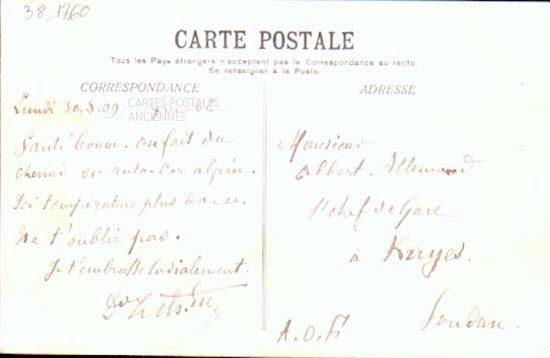 38 1760
CARTE POSTALE
Tous les Pays étrangers n'acceptent pas la Correspondance au recto.
Se renseigner à la Poste.
CORRESPONDANCE
Lundi 30.8.09.
CARTES POSTALES
ANCIENNES
Santé bonne. on fait du
chemin en auto-car alpin.
Ici température plus douce.
Ne t'oublie pas.
Je t'embrasse cordialement.
ADRESSE
Monsieur
Albert Allemand
s/chef de Gare
à Kayes.
Soudan.
A.O.F.